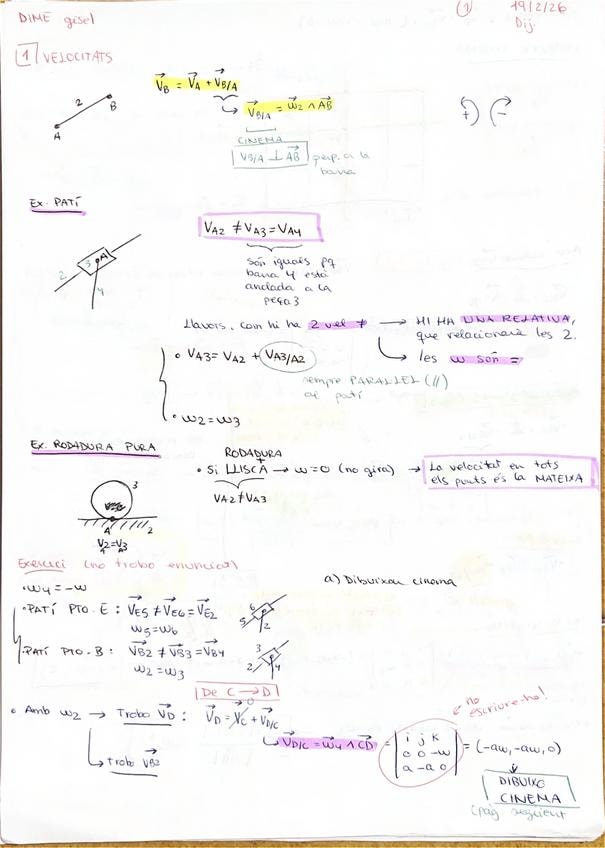 DIME gisel
1
19/2/26
Dij.
1 VELOCITATS
2
B
A
V_B = V_A + V_B/A
V_B/A = ω2 ∧ AB
CINEMA
V_B/A ⊥ AB perp. a la
barra
+ -
Ex. PATÍ
3 A
2
4
V_A2 ≠ V_A3 = V_A4
són iguals pq
barra 4 està
anclada a la
peça 3
Llavors, com hi ha 2 vel ≠ → HI HA UNA RELATIVA,
que relacionarà les 2.
les ω són =
• V_A3 = V_A2 + V_A3/A2
sempre PARAL·LEL (//)
al patí
• ω2 = ω3
Ex. RODADURA PURA
3
A 2
V2 = V3
A A
RODADURA
+
• Si LLISCA → ω=0 (no gira) → La velocitat en tots
els punts és la MATEIXA
V_A2 ≠ V_A3
Exercici (no trobo enunciat)
• ω4 = -ω
a) Dibuixar cinema
• PATÍ PTO. E : V_E5 ≠ V_E6 = V_E2
ω5 = ω6
6
5 2
• PATÍ PTO. B : V_B2 ≠ V_B3 = V_B4
ω2 = ω3
3
2 4
De C → D
• Amb ω2 → Trobo V_D : V_D = V_C + V_D/C
0
trobo V_B2
V_D/C = ω4 ∧ CD = | i j k
0 0 -ω
a -a 0 | = (-aω, -aω, 0)
no
escriure-ho!
DIBUIXO
CINEMA
(pàg següent